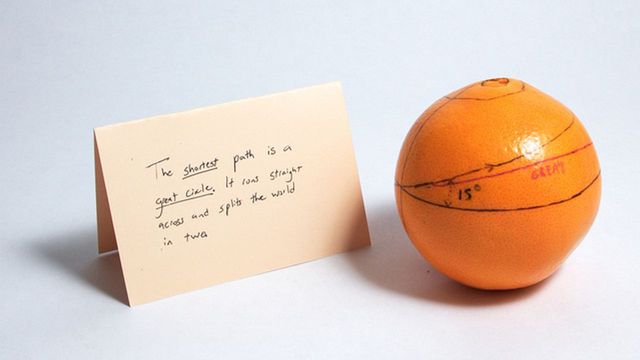 The shortest path is a
great circle. It runs straight
across and splits the world
in two.
GREAT
15°